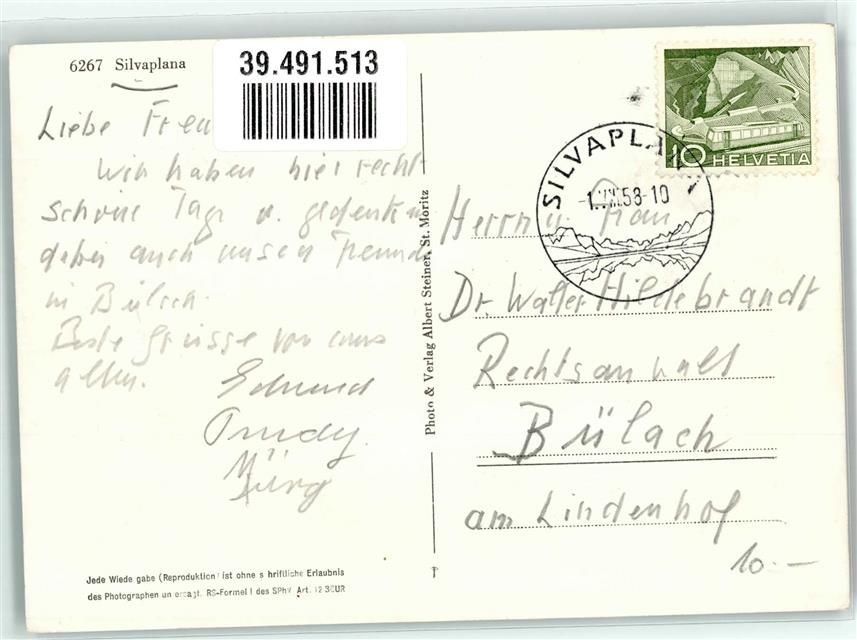 6267 Silvaplana
39.491.513
Liebe
Wir haben hier recht
schöne Tage u. gedenken
dabei auch unsern Freunden
in Bülach.
Beste Grüsse von uns
allen.
Edmund
Trudy
Jürg
Jede Wiede gabe (Reproduktion) ist ohne s hriftliche Erlaubnis
des Photographen un ersagt. RS-Formel I des SPhV Art. 12 3 CUR
Photo & Verlag Albert Steiner, St. Moritz
10 HELVETIA
SILVAPLA
58-10
Herrn u. Frau
Dr. Walter Hildebrandt
Rechtsanwalt
Bülach
am Lindenhof
10.-